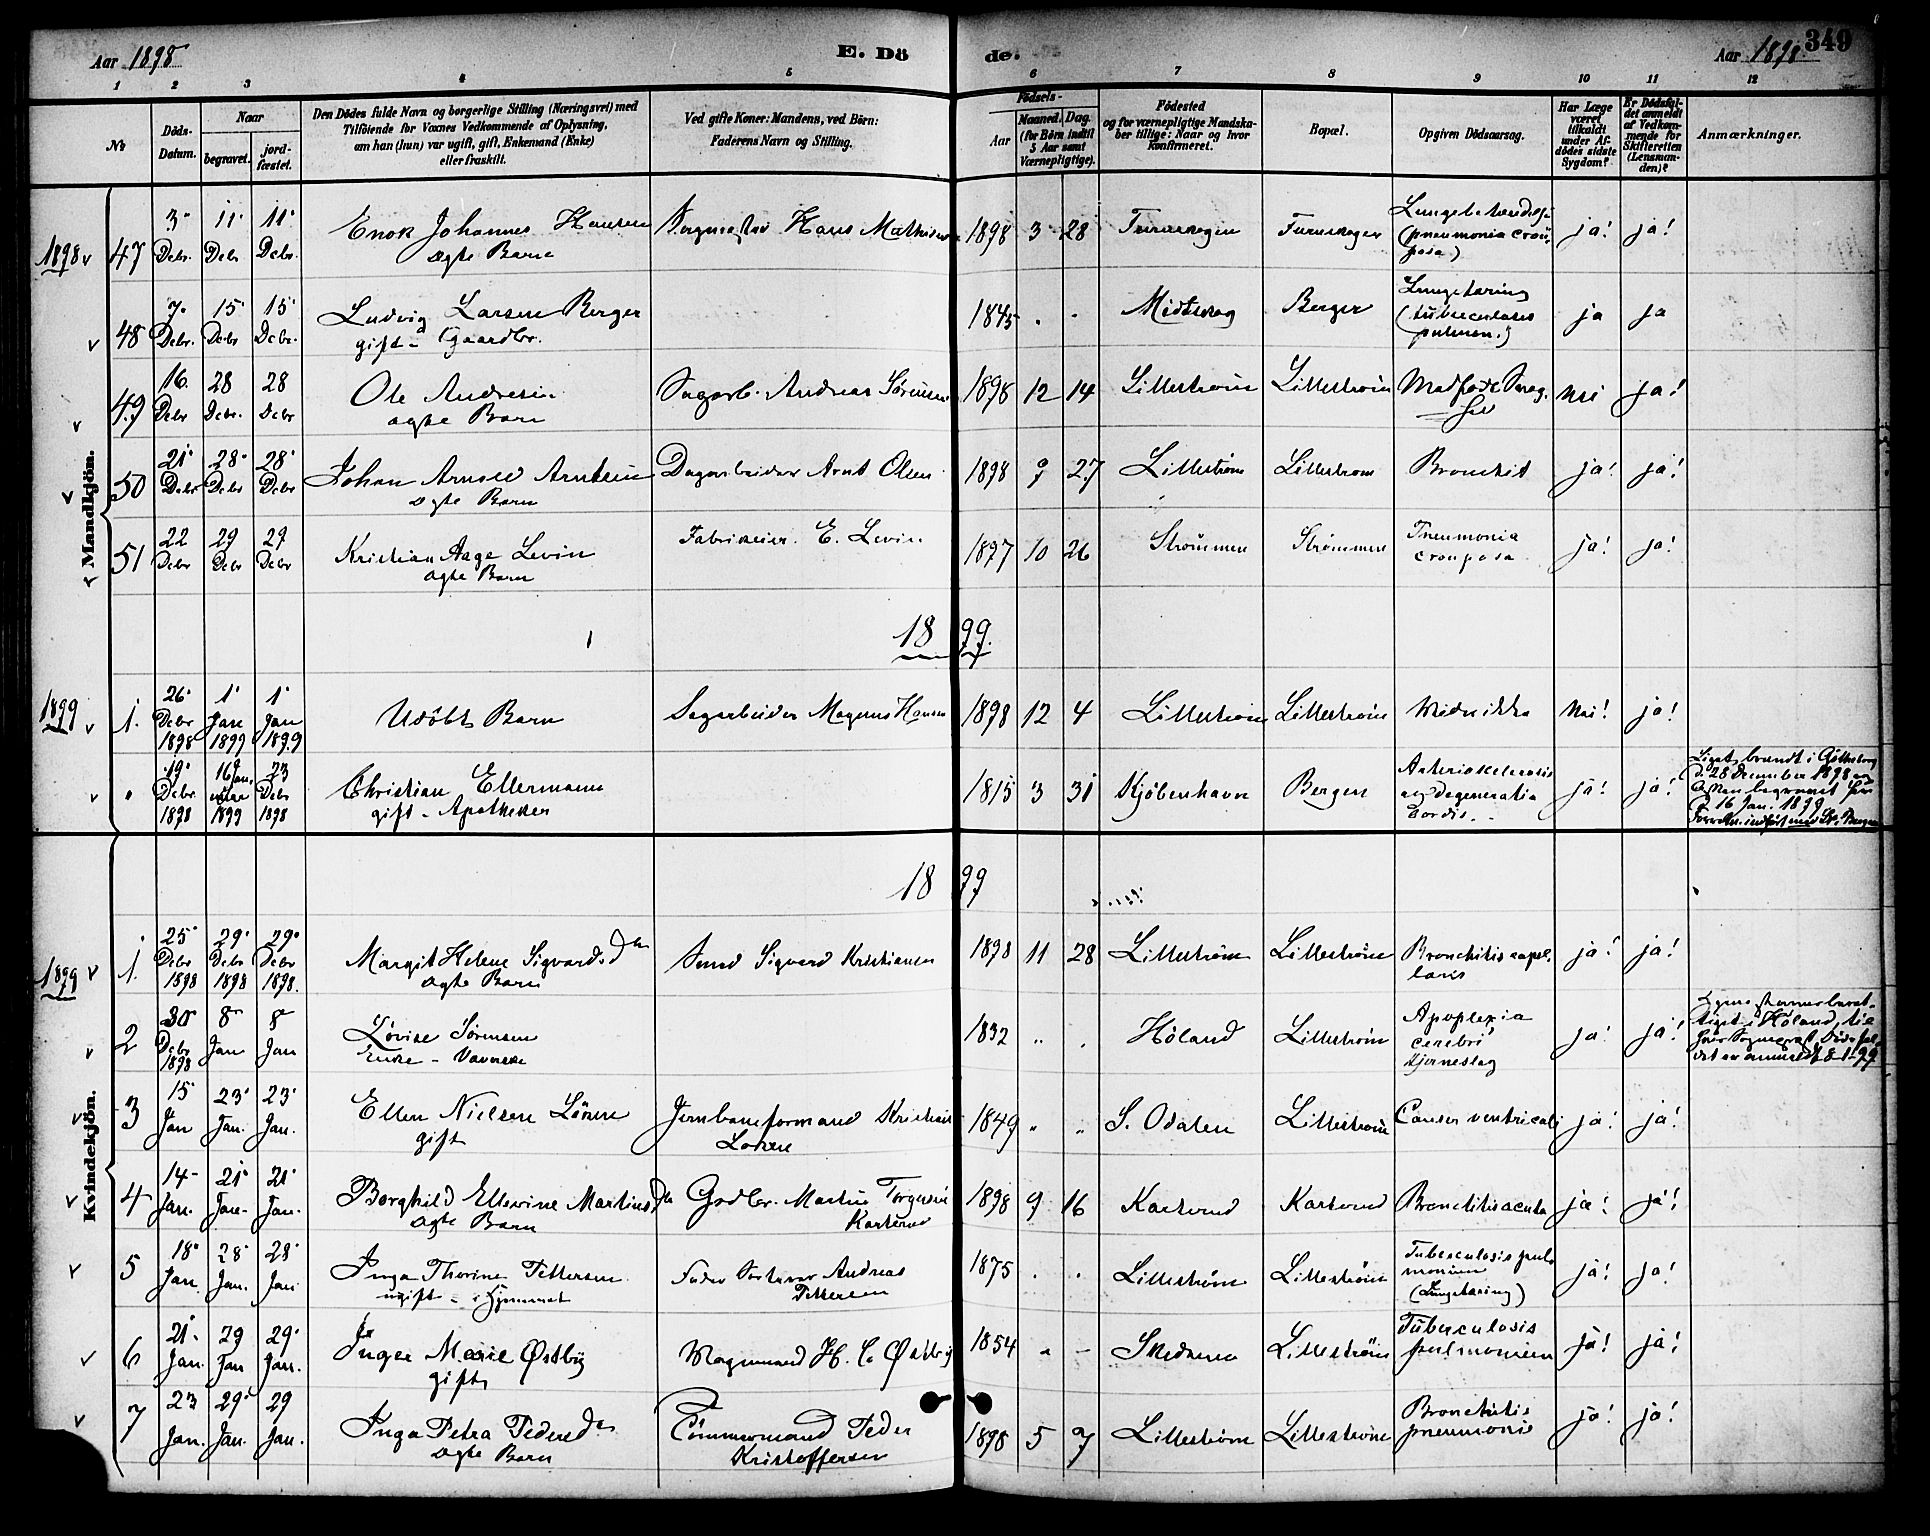 Aar 1898
E. Dö de.
Aar 1898.
349
1 2 3 4 5 6 7 8 9 10 11 12
No
Döds-Datum.
Naar
begravet.
jord-fæstet.
Den Dödes fulde Navn og borgerlige Stilling (Næringsvei) med
Tilföiende for Voxnes Vedkommende af Oplysning,
om han (hun) var ugift, gift, Enkemand (Enke)
eller fraskilt.
Ved gifte Koner: Mandens, ved Börn:
Faderens Navn og Stilling.
Födsels-
Aar
Maaned. Dag.
(for Börn indtil
5 Aar samt
Værnepligtige).
Födested
og for værnepligtige Mandska-
ber tillige: Naar og hvor
konfirmeret.
Bopæl.
Opgiven Dödsaarsag.
Har Læge
været
tilkaldt
under Af-
dödes sidste
Sygdom?
Er Dödsfal-
det anmeldt
af Vedkom-
mende for
Skifteretten
(Lensman-
den)?
Anmærkninger.
Mandkjön.
1898 47 3 Debr. 11 Debr 11 Debr. Enok Johannes Hansen
ægte Barn
Hans Mathisen 1898 3 28 Furuskogen Furuskogen Lungebetændelse
(pneumonia crou-
posa) ja! ja!
48 7. Debr. 15 Debr 15 Debr. Ludvig Larsen Berger
gift - Gaardbr.
1845 Midtskog Berger Lungetæring
(tuberculosis
pulmon.) ja ja
49 16. Debr 28 Debr. 28 Debr Ole Andresen
ægte Barn
Sagarb. Andreas Sörensen 1898 12 14 Lilleström Lilleström Nei ja!
50 21 Debr 28 Debr 28 Debr Johan Arntsen
ægte Barn
Dagarbeider Arnt Olsen 1898 9 27 Lilleström Lilleström Bronchit ja! ja!
51 22 Debr 29 Debr 29 Debr Kristian Aage Levin
ægte Barn
Fabrikeier. E. Levin 1897 10 26 Strömmen Strömmen Pneumonia
crouposa ja! ja!
1899.
1899 1. 26 Debr 1898 1 Jan 1899 1 Jan 1899 Udöbt Barn
Sagarbeider Magnus Hansen 1898 12 4 Lilleström Lilleström Vides ikke Nei! ja!
" 19 Debr. 1898 16 Jan. 1899 23 Debr 1898 Christian Ellermann
gift - Apotheker
1815 3 31 Kjöbenhavn Bergen Arteriosclerosis
og degeneratio
cordis. ja! ja!
Liget brændt i Götheborg
d. 28 December 1898 og
Asken begravet her
d 16 Jan. 1899
Kvindekjön.
1899
1899 1. 25 Debr 1898 29 Debr 1898 29 Debr 1898. Margit Helene Sigvardsdtr
ægte Barn
Smed Sigvard Kristiansen 1898 11 28 Lilleström Lilleström Bronchitis capil-
laris ja! ja!
2 30 Debr 1898 8 Jan 8 Jan Lovise Sörensen
Enke -
1832 Höland Lilleström Apoplexia
cerebri
Hjerneslag ja! ja!
3 15 Jan 23 Jan. 23 Jan. Ellen Nielsen Lören
gift
Jernbaneformand Kristian
Lören
1849 S. Odalen Lilleström Cancer ventriculi ja! ja!
4 14 Jan. 21 Jan. 21 Jan. Borghild Ellevine Martinsdtr
ægte Barn
Grdbr. Martin Torgersen
Karterud
1898 9 16 Karterud Karterud Bronchitis acuta ja! ja!
5 18 Jan. 28 Jan. 28 Jan Inga Thorine Pettersen
ugift - i Hjemmet
Fader Andreas
Pettersen
1875 Lilleström Lilleström Tuberculosis pul-
monum
(Lungetæring) ja! ja!
6 21 Jan. 29 Jan 29 Jan. Inger Marie Östby
gift
Vognmand H. C. Östby 1854 Skedsmo Lilleström Tuberculosis
pulmonum ja! ja!
7 23 Jan. 29 Jan. 29 Jan. Inga Petra Pedersdtr
ægte Barn
Tömmermand Peder
Kristoffersen
1898 5 7 Lilleström Lilleström Bronchitis
pneumoni ja! ja!